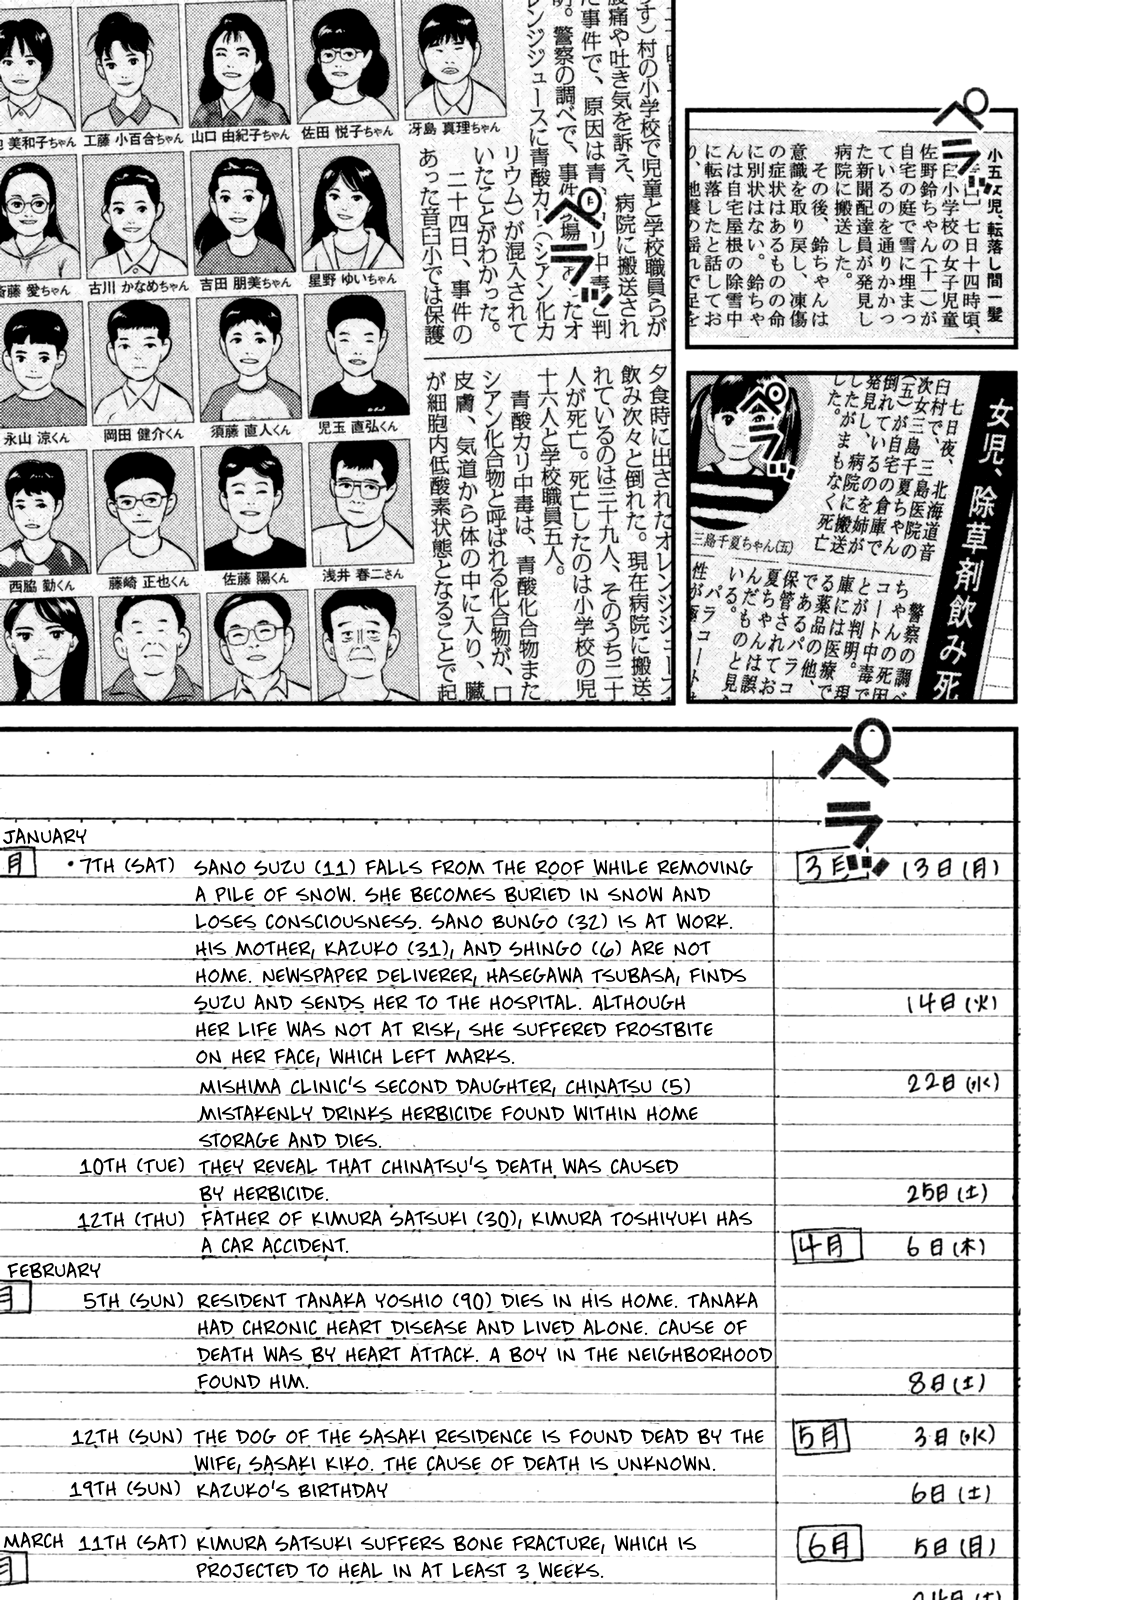 ペラッ
小五女児、転落し間一髪
七日十四時頃、
臼小学校の女子児童
佐野鈴ちゃん(十一)が
自宅の庭で雪に埋まっ
ているのを通りかかっ
た新聞配達員が発見し
病院に搬送した。
その後、鈴ちゃんは
意識を取り戻し、凍傷
の症状はあるものの命
に別状はない。鈴ちゃ
んは自宅屋根の除雪中
に転落したと話してお
り、地震の揺れで足を
ペラッ
す)村の小学校で児童と学校職員らが
腹痛や吐き気を訴え、病院に搬送され
た事件で、原因は青
リ中毒と判
明。警察の調べで、事件現場
あったオ
レンジジュースに青酸カリ(シアン化カ
リウム)が混入されて
いたことがわかった。
二十四日、事件の
あった音臼小では保護
夕食時に出されたオレンジジュースを
飲み次々と倒れた。現在病院に搬送さ
れているのは三十九人、そのうち二十
人が死亡。死亡したのは小学校の児
十六人と学校職員五人。
青酸カリ中毒は、青酸化合物また
シアン化合物と呼ばれる化合物が、口
皮膚、気道から体の中に入り、臓
が細胞内低酸素状態となることで起
美和子ちゃん
工藤 小百合ちゃん
山口 由紀子ちゃん
佐田 悦子ちゃん
冴島 真理ちゃん
斎藤 愛ちゃん
古川 かなめちゃん
吉田 朋美ちゃん
星野 ゆいちゃん
永山 涼くん
岡田 健介くん
須藤 直人くん
児玉 直弘くん
西脇 勤くん
藤崎 正也くん
佐藤 陽くん
浅井 春二さん
女児、除草剤飲み死
ペラッ
七日夜、北海道音
臼村で、三島医院の
次女三島千夏ちゃん
(五)が自宅の倉庫で
倒れているのを姉が
発見し、病院に搬送
したがまもなく死亡
した。
三島千夏ちゃん(五)
警察の調べ
ちゃんの死因
コート中毒で
とが判明。現
庫には医療で
る薬品の他、
であるパラコ
保管されてお
夏ちゃんは誤
んだものと見
いる。
パラコート
性が極
ペラッ
JANUARY
月 •7TH (SAT) SANO SUZU (11) FALLS FROM THE ROOF WHILE REMOVING
A PILE OF SNOW. SHE BECOMES BURIED IN SNOW AND
LOSES CONSCIOUSNESS. SANO BUNGO (32) IS AT WORK.
HIS MOTHER, KAZUKO (31), AND SHINGO (6) ARE NOT
HOME. NEWSPAPER DELIVERER, HASEGAWA TSUBASA, FINDS
SUZU AND SENDS HER TO THE HOSPITAL. ALTHOUGH
HER LIFE WAS NOT AT RISK, SHE SUFFERED FROSTBITE
ON HER FACE, WHICH LEFT MARKS.
MISHIMA CLINIC'S SECOND DAUGHTER, CHINATSU (5)
MISTAKENLY DRINKS HERBICIDE FOUND WITHIN HOME
STORAGE AND DIES.
10TH (TUE) THEY REVEAL THAT CHINATSU'S DEATH WAS CAUSED
BY HERBICIDE.
12TH (THU) FATHER OF KIMURA SATSUKI (30), KIMURA TOSHIYUKI HAS
A CAR ACCIDENT.
FEBRUARY
月 5TH (SUN) RESIDENT TANAKA YOSHIO (90) DIES IN HIS HOME. TANAKA
HAD CHRONIC HEART DISEASE AND LIVED ALONE. CAUSE OF
DEATH WAS BY HEART ATTACK. A BOY IN THE NEIGHBORHOOD
FOUND HIM.
12TH (SUN) THE DOG OF THE SASAKI RESIDENCE IS FOUND DEAD BY THE
WIFE, SASAKI KIKO. THE CAUSE OF DEATH IS UNKNOWN.
19TH (SUN) KAZUKO'S BIRTHDAY
MARCH 11TH (SAT) KIMURA SATSUKI SUFFERS BONE FRACTURE, WHICH IS
月 PROJECTED TO HEAL IN AT LEAST 3 WEEKS.
3月 13日(月)
14日(火)
22日(水)
25日(土)
4月 6日(木)
8日(土)
5月 3日(水)
6日(土)
6月 5日(月)